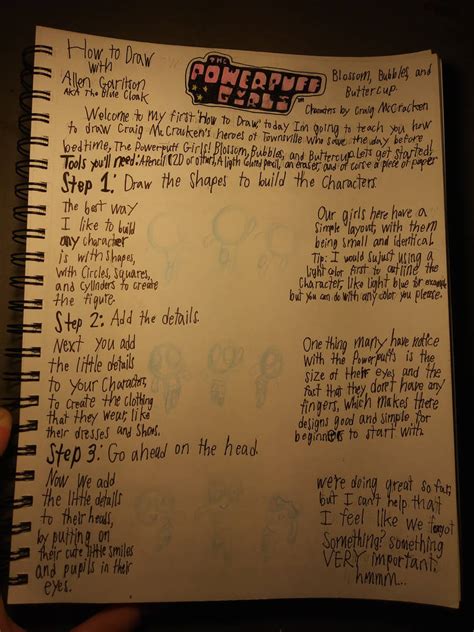 How to Draw
with
Allen Garitson
AKA The Blue Cloak
THE
POWERPUFF
GIRLS
Blossom, Bubbles, and
Buttercup.
Characters by Craig McCracken
Welcome to my first "How to Draw" today Im going to teach you how
to draw Craig McCracken's heroes of Townsville who save the day before
bedtime, The Powerpuff Girls! Blossom, Bubbles, and Buttercup. Lets get started!
Tools you'll need: A pencil #2D or other, A ligth colored pencil, an eraser, and of corse a piece of paper
Step 1: Draw the Shapes to build the Characters.
The best way
I like to build
any character
is with shapes,
with Circles, Squares,
and Cylinders to create
the figure.
Our girls here have a
simple layout, with them
being small and identical
Tip: I would sujust using a
light color first to out line the
Character, like light blue for example
but you can do with any color you please.
Step 2: Add the details.
Next you add
the little details
to your Characters,
to create the clothing
that they wear, like
their dresses and shoes.
One thing many have notice
With the Powerpuffs is the
size of their eyes and the
fact that they don't have any
fingers, which makes there
designs good and simple for
beginners to start with.
Step 3: Go ahead on the head.
Now we add
the little details
to their heads,
by putting on
their cute little smiles
and pupils in their
eyes.
we're doing great so far,
but I can't help that
I feel like we forgot
Something? something
VERY important,
hmmm...